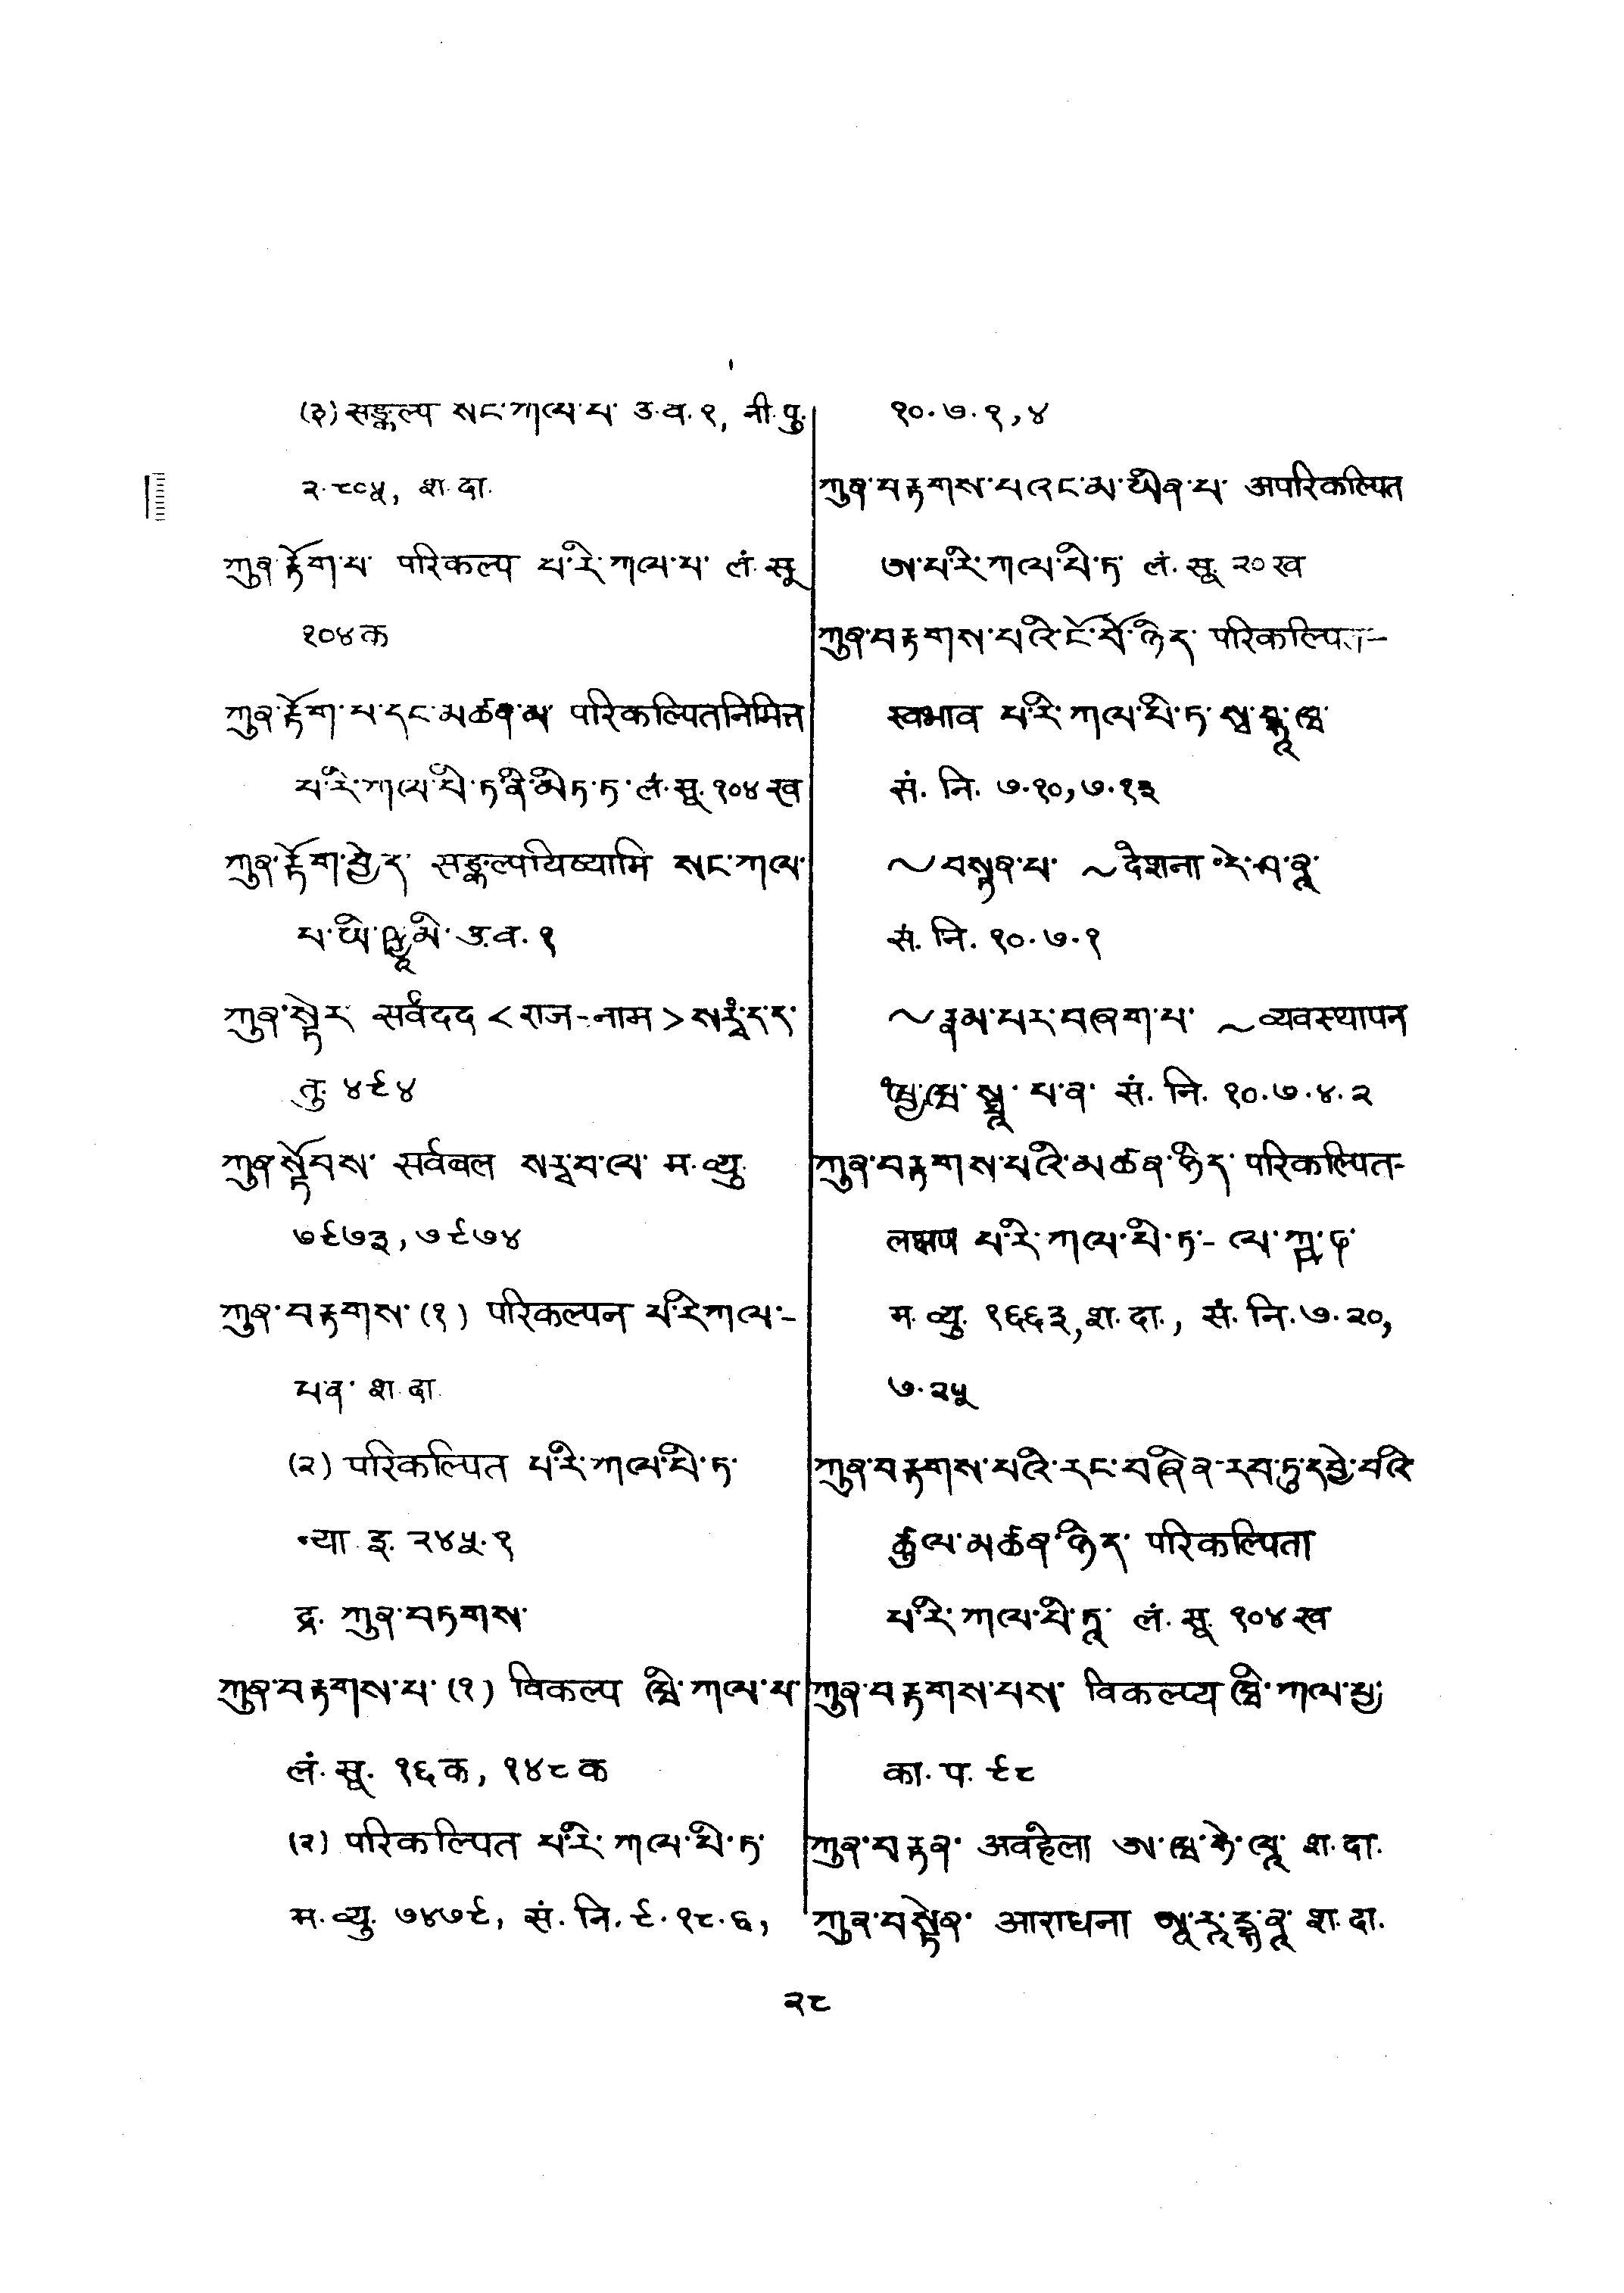 (३) सङ्कल्प སང་ཀལ་པ་ उ.व. १, नी.पु.
२.८०५, श.दा.
ཀུན་རྟོག་པ་ परिकल्प པ་རི་ཀལ་པ་ लं.सू
१०४क
ཀུན་རྟོག་པ་དང་མཚན་མ་ परिकल्पितनिमित्त
པ་རི་ཀལ་པི་ཏ་ནི་མིཏ་ཏ་ लं.सू. १०४ख
ཀུན་རྟོག་བྱེད་ सङ्कल्पयिष्यामि སང་ཀལ་
པ་ཡི་ཥྱཱ་མི་ उ.व. १
ཀུན་སྟེར་ सर्वंदद < राज-नाम > སརྦཾ་ད་ད་
तु. ४९४
ཀུན་སྟོབས་ सर्वबल སརྦ་བ་ལ་ म.व्यु.
७९७३, ७९७४
ཀུན་བརྟགས་ (१) परिकल्पन པ་རི་ཀལ་-
པ་ན་ श.दा.
(२) परिकल्पित པ་རི་ཀལ་པི་ཏ་
न्या.इ. २४५.१
द्र. ཀུན་བཏགས་
ཀུན་བརྟགས་པ་ (१) विकल्प ཝི་ཀལ་པ་
लं.सू. १६क, १४८क
(२) परिकल्पित པ་རི་ཀལ་པི་ཏ་
म.व्यु. ७४७९, सं.नि. ९.१८.६,
१०.७.१,४
ཀུན་བརྟགས་པའང་མ་ཡིན་པ་ अपरिकल्पित
ཨ་པ་རི་ཀལ་པི་ཏ་ लं.सू. २०ख
ཀུན་བརྟགས་པའི་ངོ་བོ་ཉིད་ परिकल्पित-
स्वभाव པ་རི་ཀལ་པི་ཏ་སྭ་བྷཱ་ཝ་
सं.नि. ७.१०, ७.१३
~བསྟན་པ་ ~देशना དེ་ཤ་ནཱ་
सं.नि. १०.७.१
~རྣམ་པར་བཞག་པ་ ~व्यवस्थापन
ཝྱ་ཝ་སྠཱ་པ་ན་ सं.नि. १०.७.४.२
ཀུན་བརྟགས་པའི་མཚན་ཉིད་ परिकल्पित-
लक्षण པ་རི་ཀལ་པི་ཏ་- ལ་ཀྵ་ཎ་
म.व्यु. १६६३, श.दा., सं.नि. ७.२०,
७.२५
ཀུན་བརྟགས་པའི་རང་བཞིན་རབ་ཏུ་དབྱེ་བའི་
ཚུལ་མཚན་ཉིད་ परिकल्पिता
པ་རི་ཀལ་པི་ཏཱ་ लं.सू. १०४ख
ཀུན་བརྟགས་པས་ विकल्प्य ཝི་ཀལ་པྱ་
का.प. ९८
ཀུན་བརྟན་ अवहेला ཨ་ཝ་ཧེ་ལཱ་ श.दा.
ཀུན་བསྟེན་ आराधना ཨཱ་རཱ་དྷ་ནཱ་ श.दा.
२८